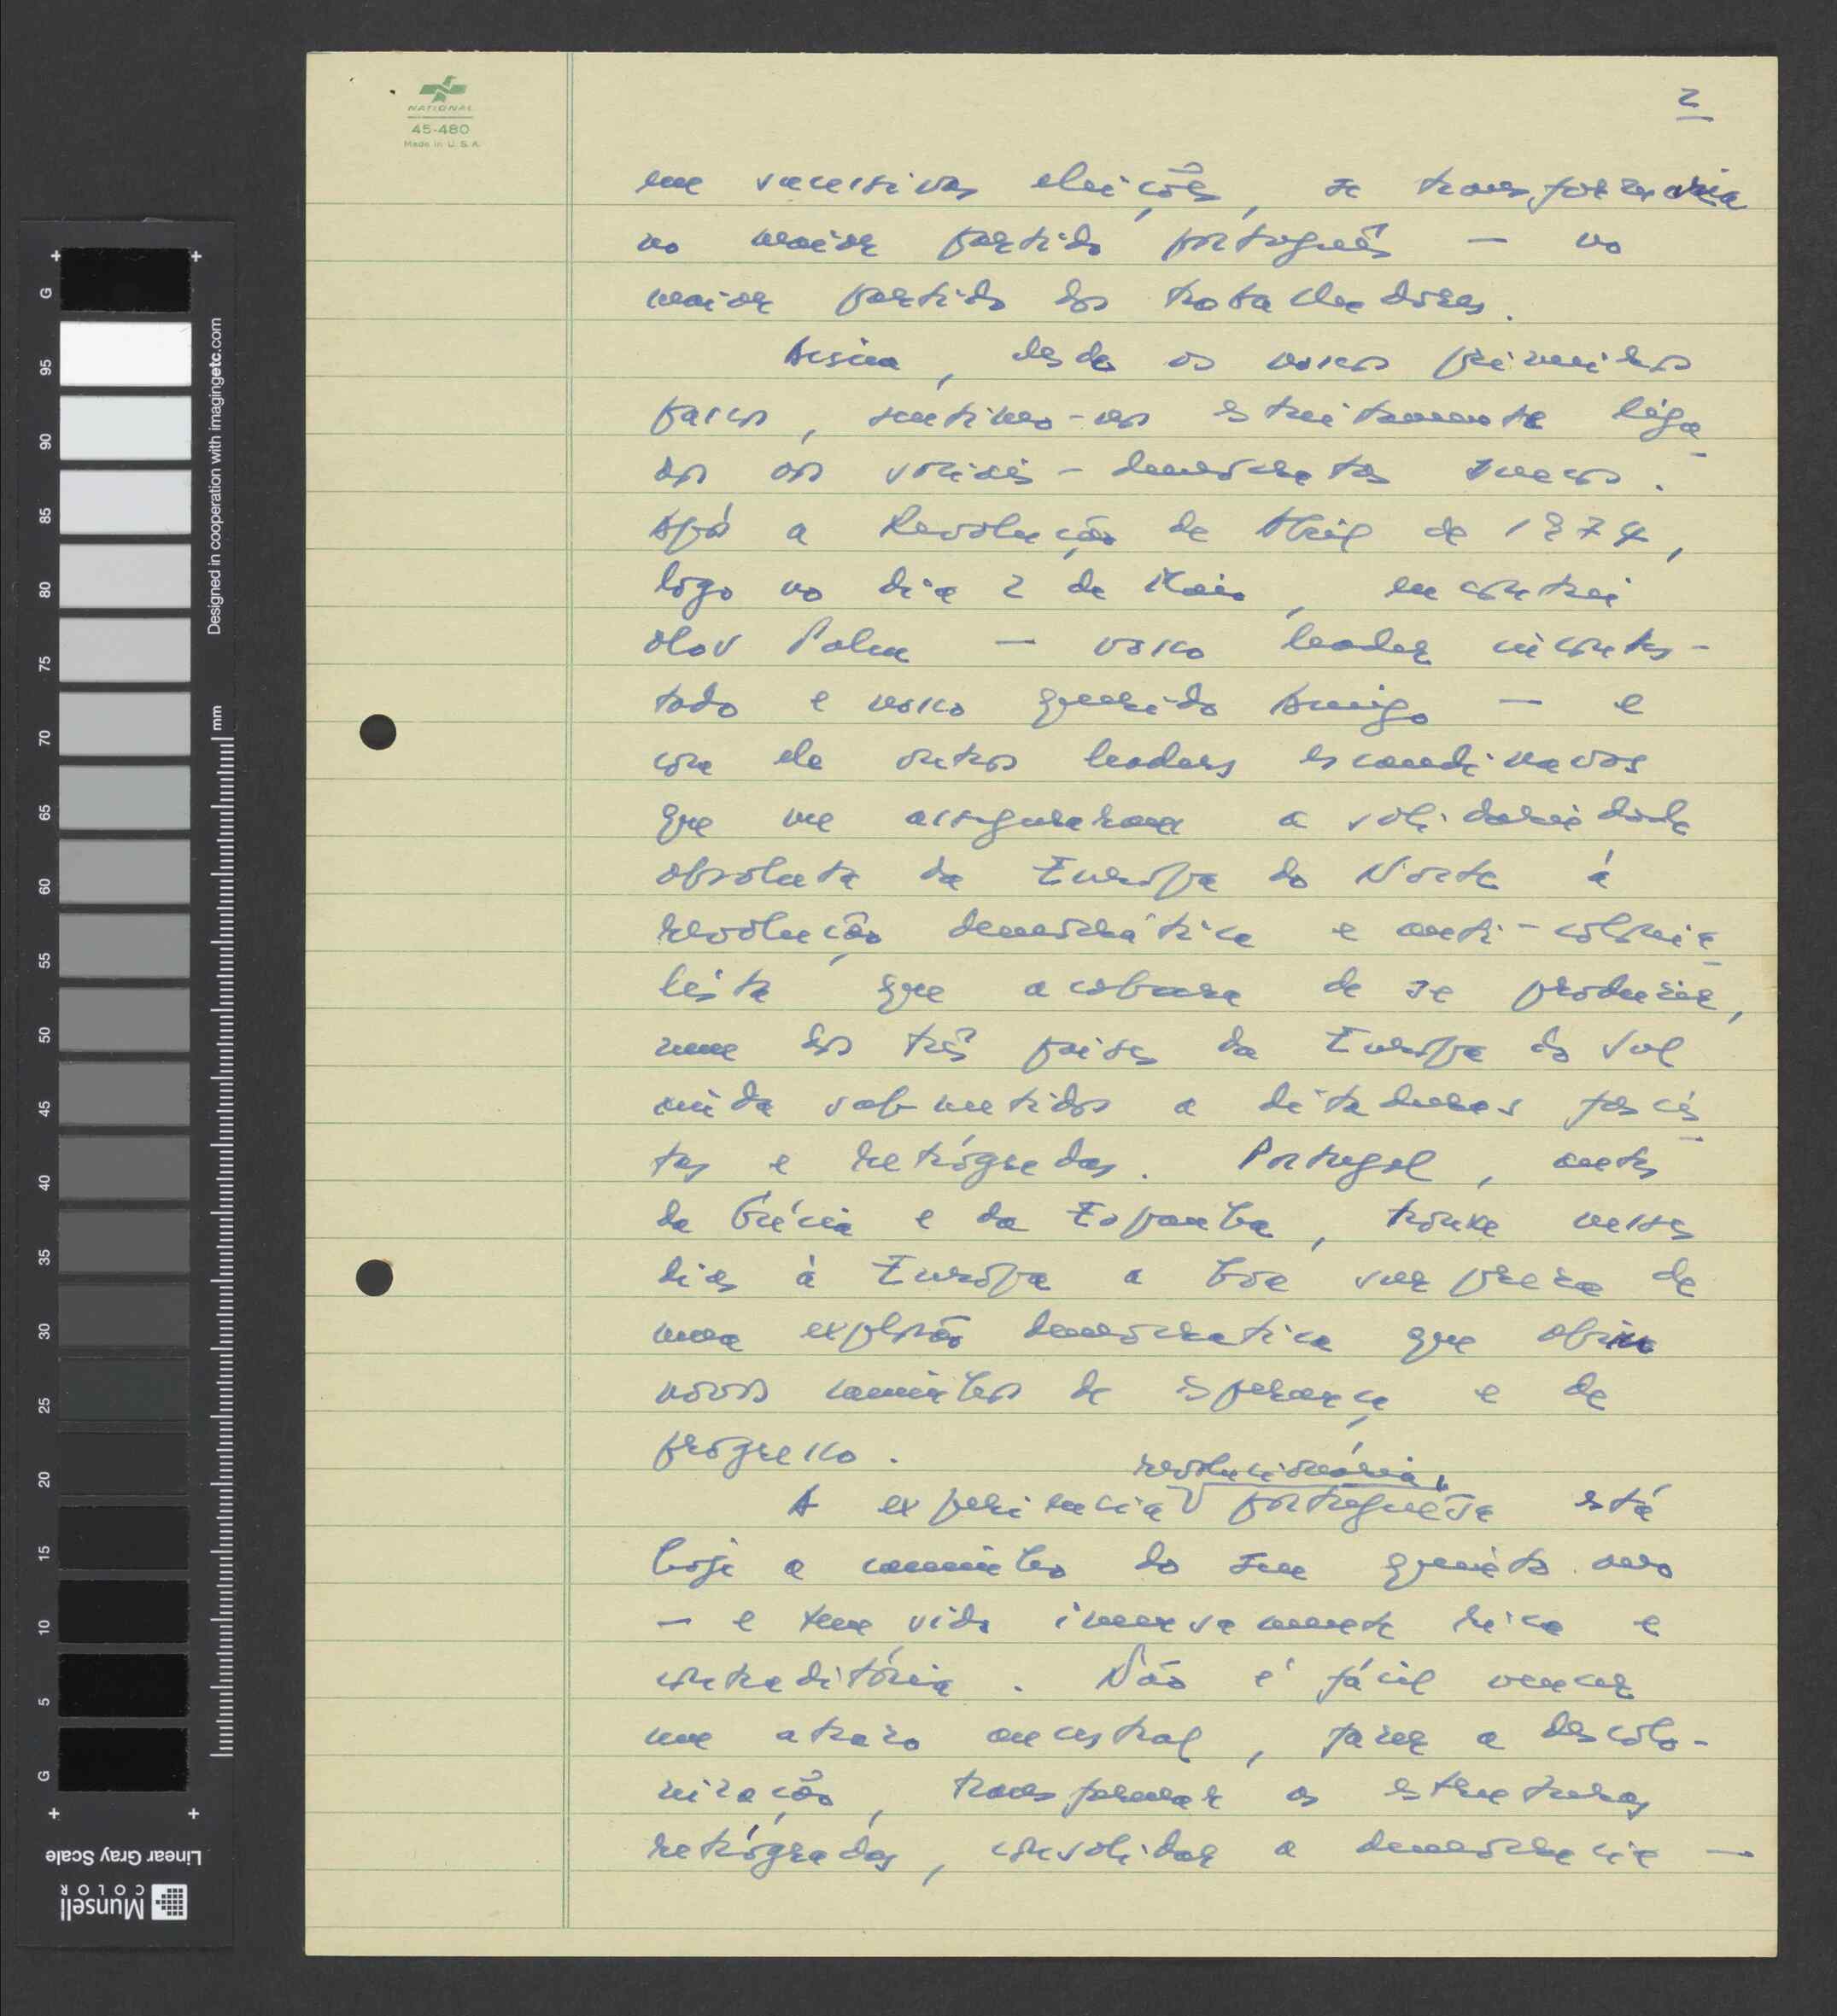 NATIONAL
45-480
Made in U.S.A.
2
em sucessivas eleições, se transformaria
no maior partido português — no
maior partido dos trabalhadores.
Assim, desde os nossos primeiros
passos, sentimo-nos estreitamente liga
dos aos sociais-democratas suecos.
Após a Revolução de Abril de 1974,
logo no dia 2 de Maio, encontrei
Olov Palme — vosso leader incontes-
tado e nosso querido Amigo — e
com ele outros leaders escandinavos
que me asseguraram a solidariedade
absoluta da Europa do Norte á
revolução democrática e anti-colonia
lista que acabara de se produzir,
num dos três paises da Europa do Sul
ainda submetidos a ditaduras fascis
tas e retrógradas. Portugal, antes
da Grécia e da Espanha, trouxe nesses
dias à Europa a boa surpreza de
uma explosão democratica que abriu
novos caminhos de esperança e de
progresso.
revolucionária
A experiencia portuguêsa está
hoje a caminho do seu quinto ano
— e tem sido imensamente rica e
contraditória. Não é fácil vencer
um atrazo ancestral, fazer a descolo-
nização, transformar as estruturas
retrógradas, consolidar a democracia —
Designed in cooperation with imagingetc.com
mm
G
95
90
85
80
75
70
65
60
55
50
45
40
35
30
25
20
15
10
5
G
Linear Gray Scale
Munsell
COLOR